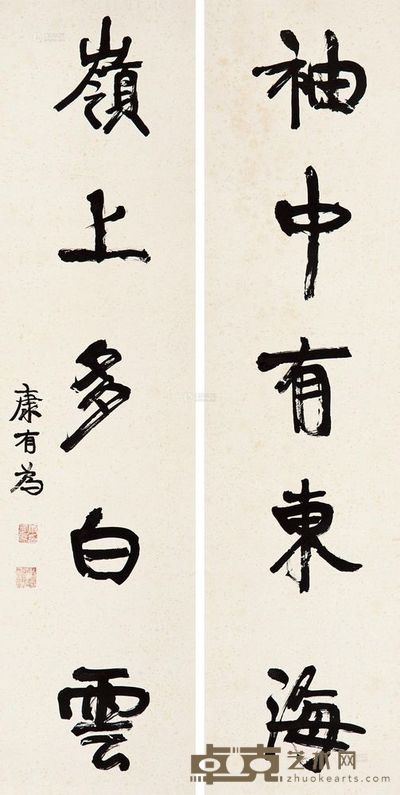 袖中有東海
嶺上多白雲
康有為
卓克艺术网
zhuokearts.com